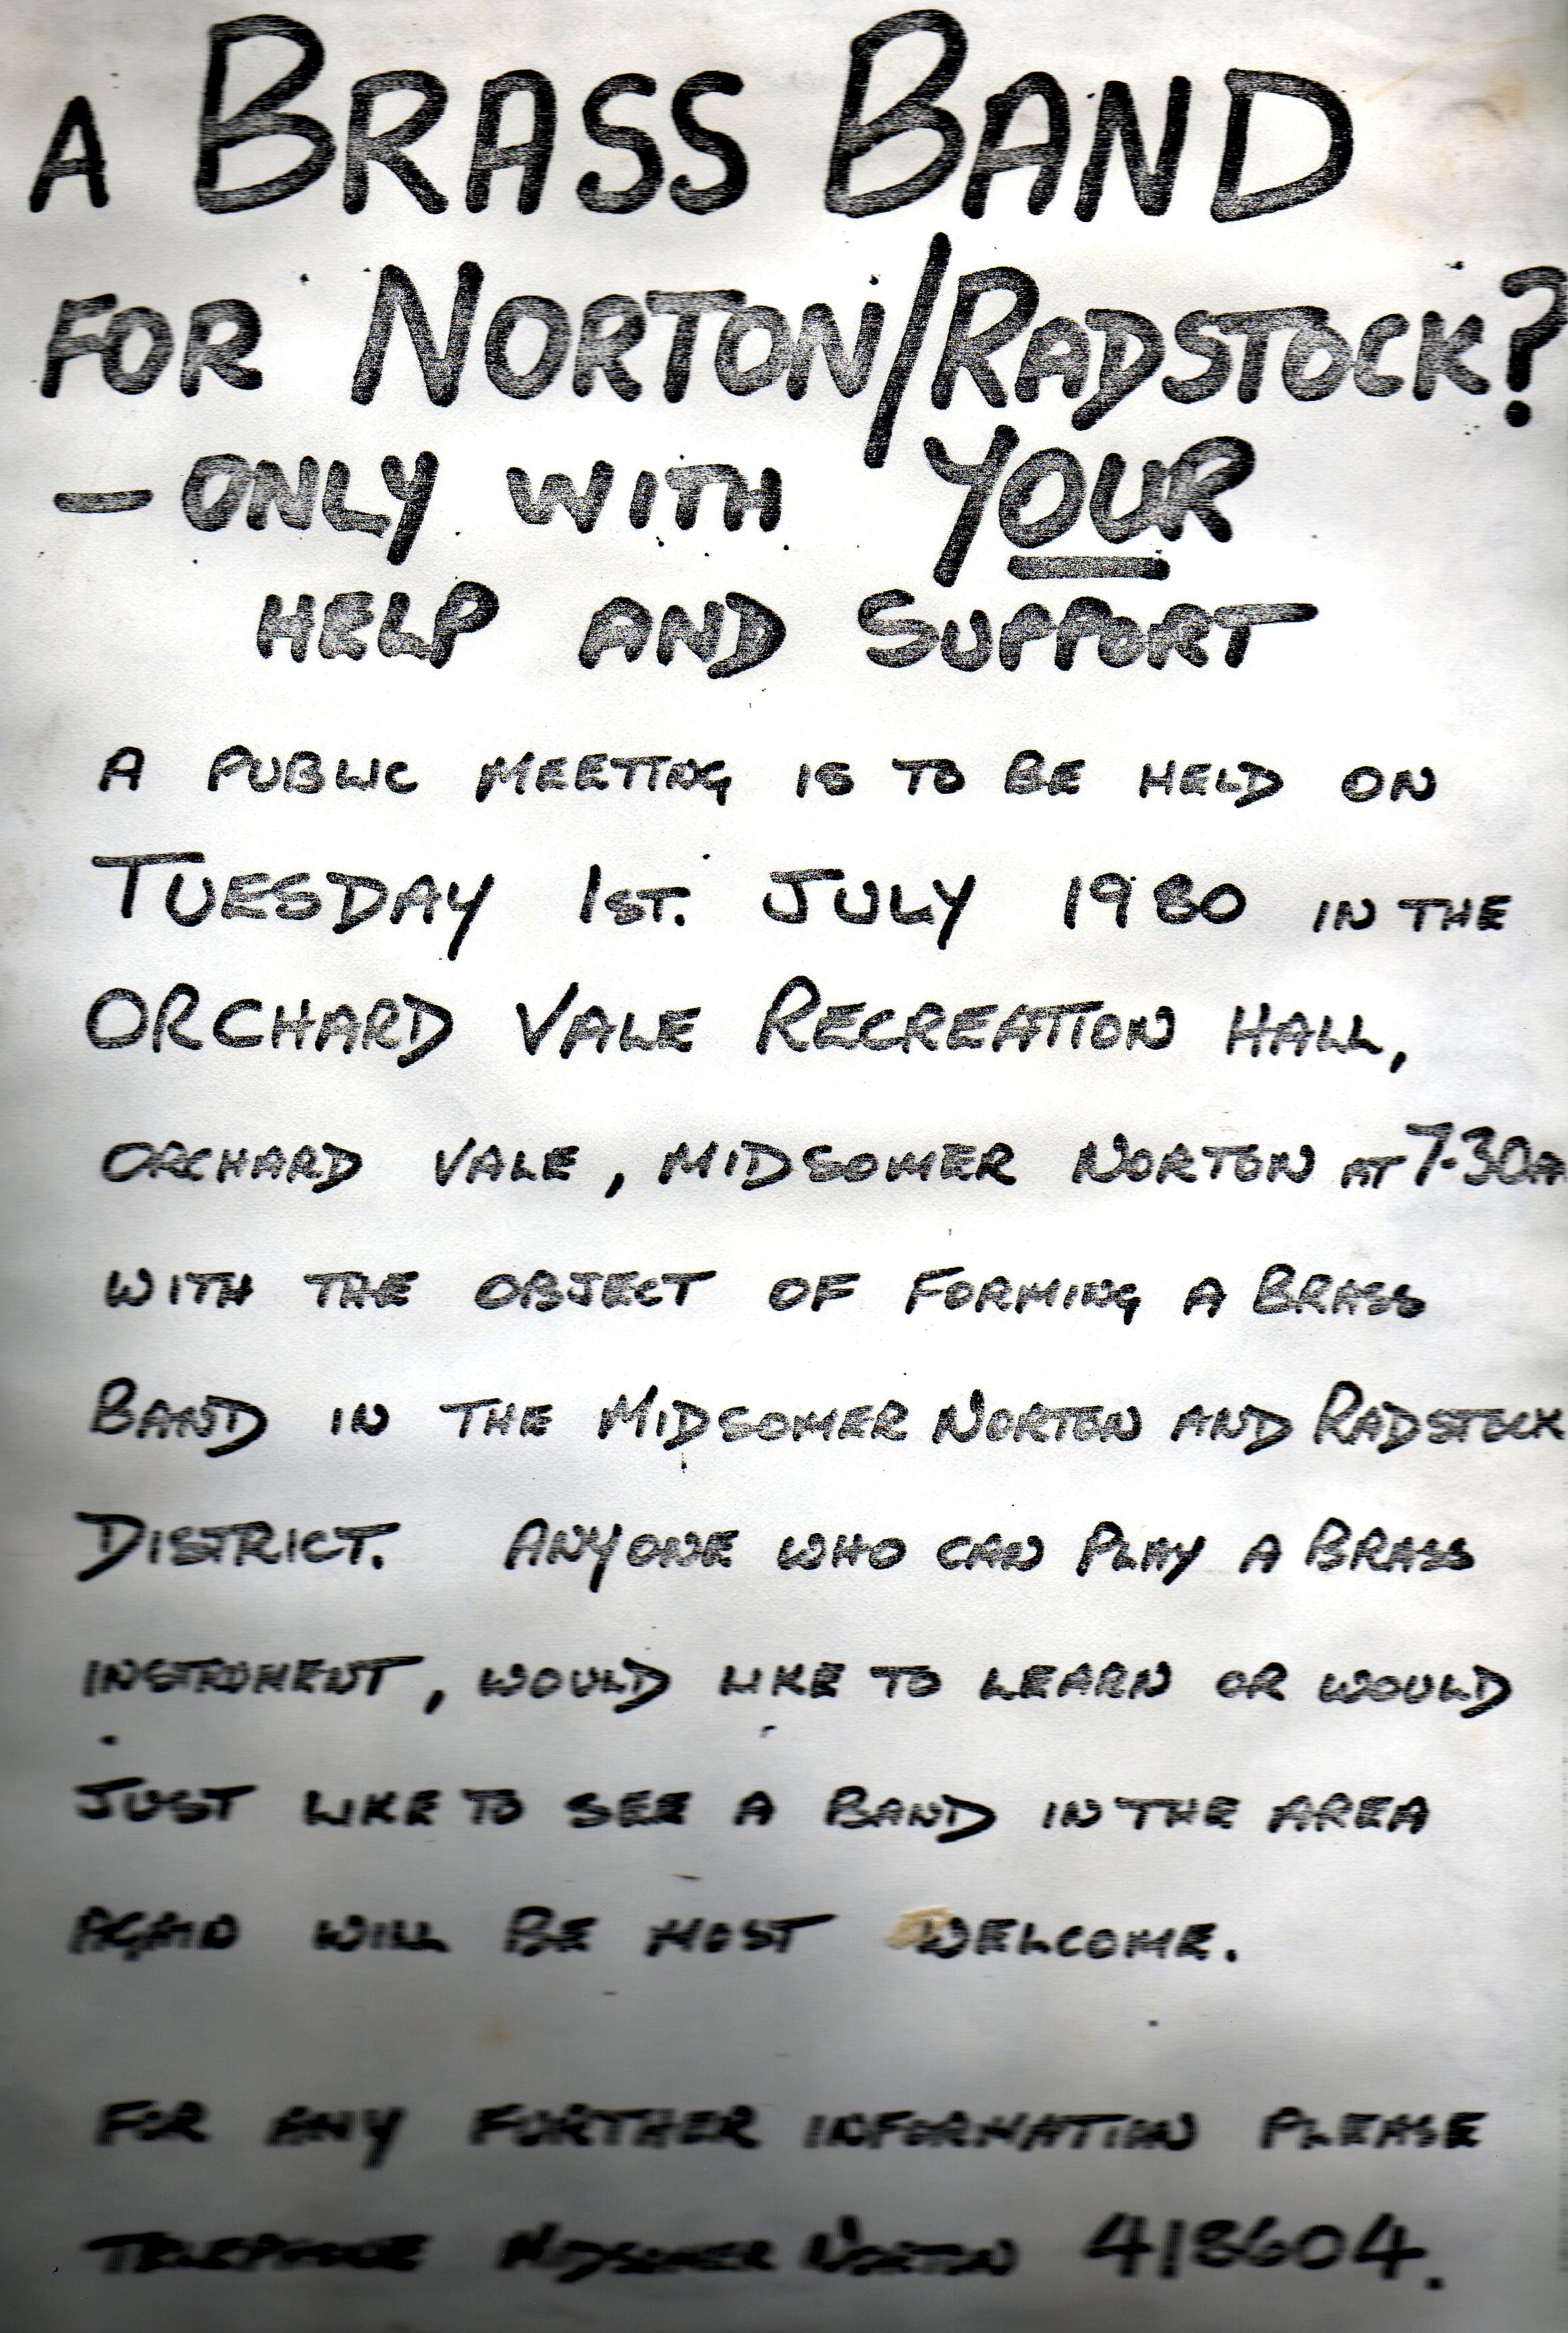 A BRASS BAND
FOR NORTON/RADSTOCK?
- ONLY WITH YOUR
HELP AND SUPPORT
A PUBLIC MEETING IS TO BE HELD ON
TUESDAY 1ST. JULY 1980 IN THE
ORCHARD VALE RECREATION HALL,
ORCHARD VALE, MIDSOMER NORTON AT 7·30
WITH THE OBJECT OF FORMING A BRASS
BAND IN THE MIDSOMER NORTON AND RADSTOCK
DISTRICT. ANYONE WHO CAN PLAY A BRASS
INSTRUMENT, WOULD LIKE TO LEARN OR WOULD
JUST LIKE TO SEE A BAND IN THE AREA
AGAIN WILL BE MOST WELCOME.
FOR ANY FURTHER INFORMATION PLEASE
TELEPHONE MIDSOMER NORTON 418604.